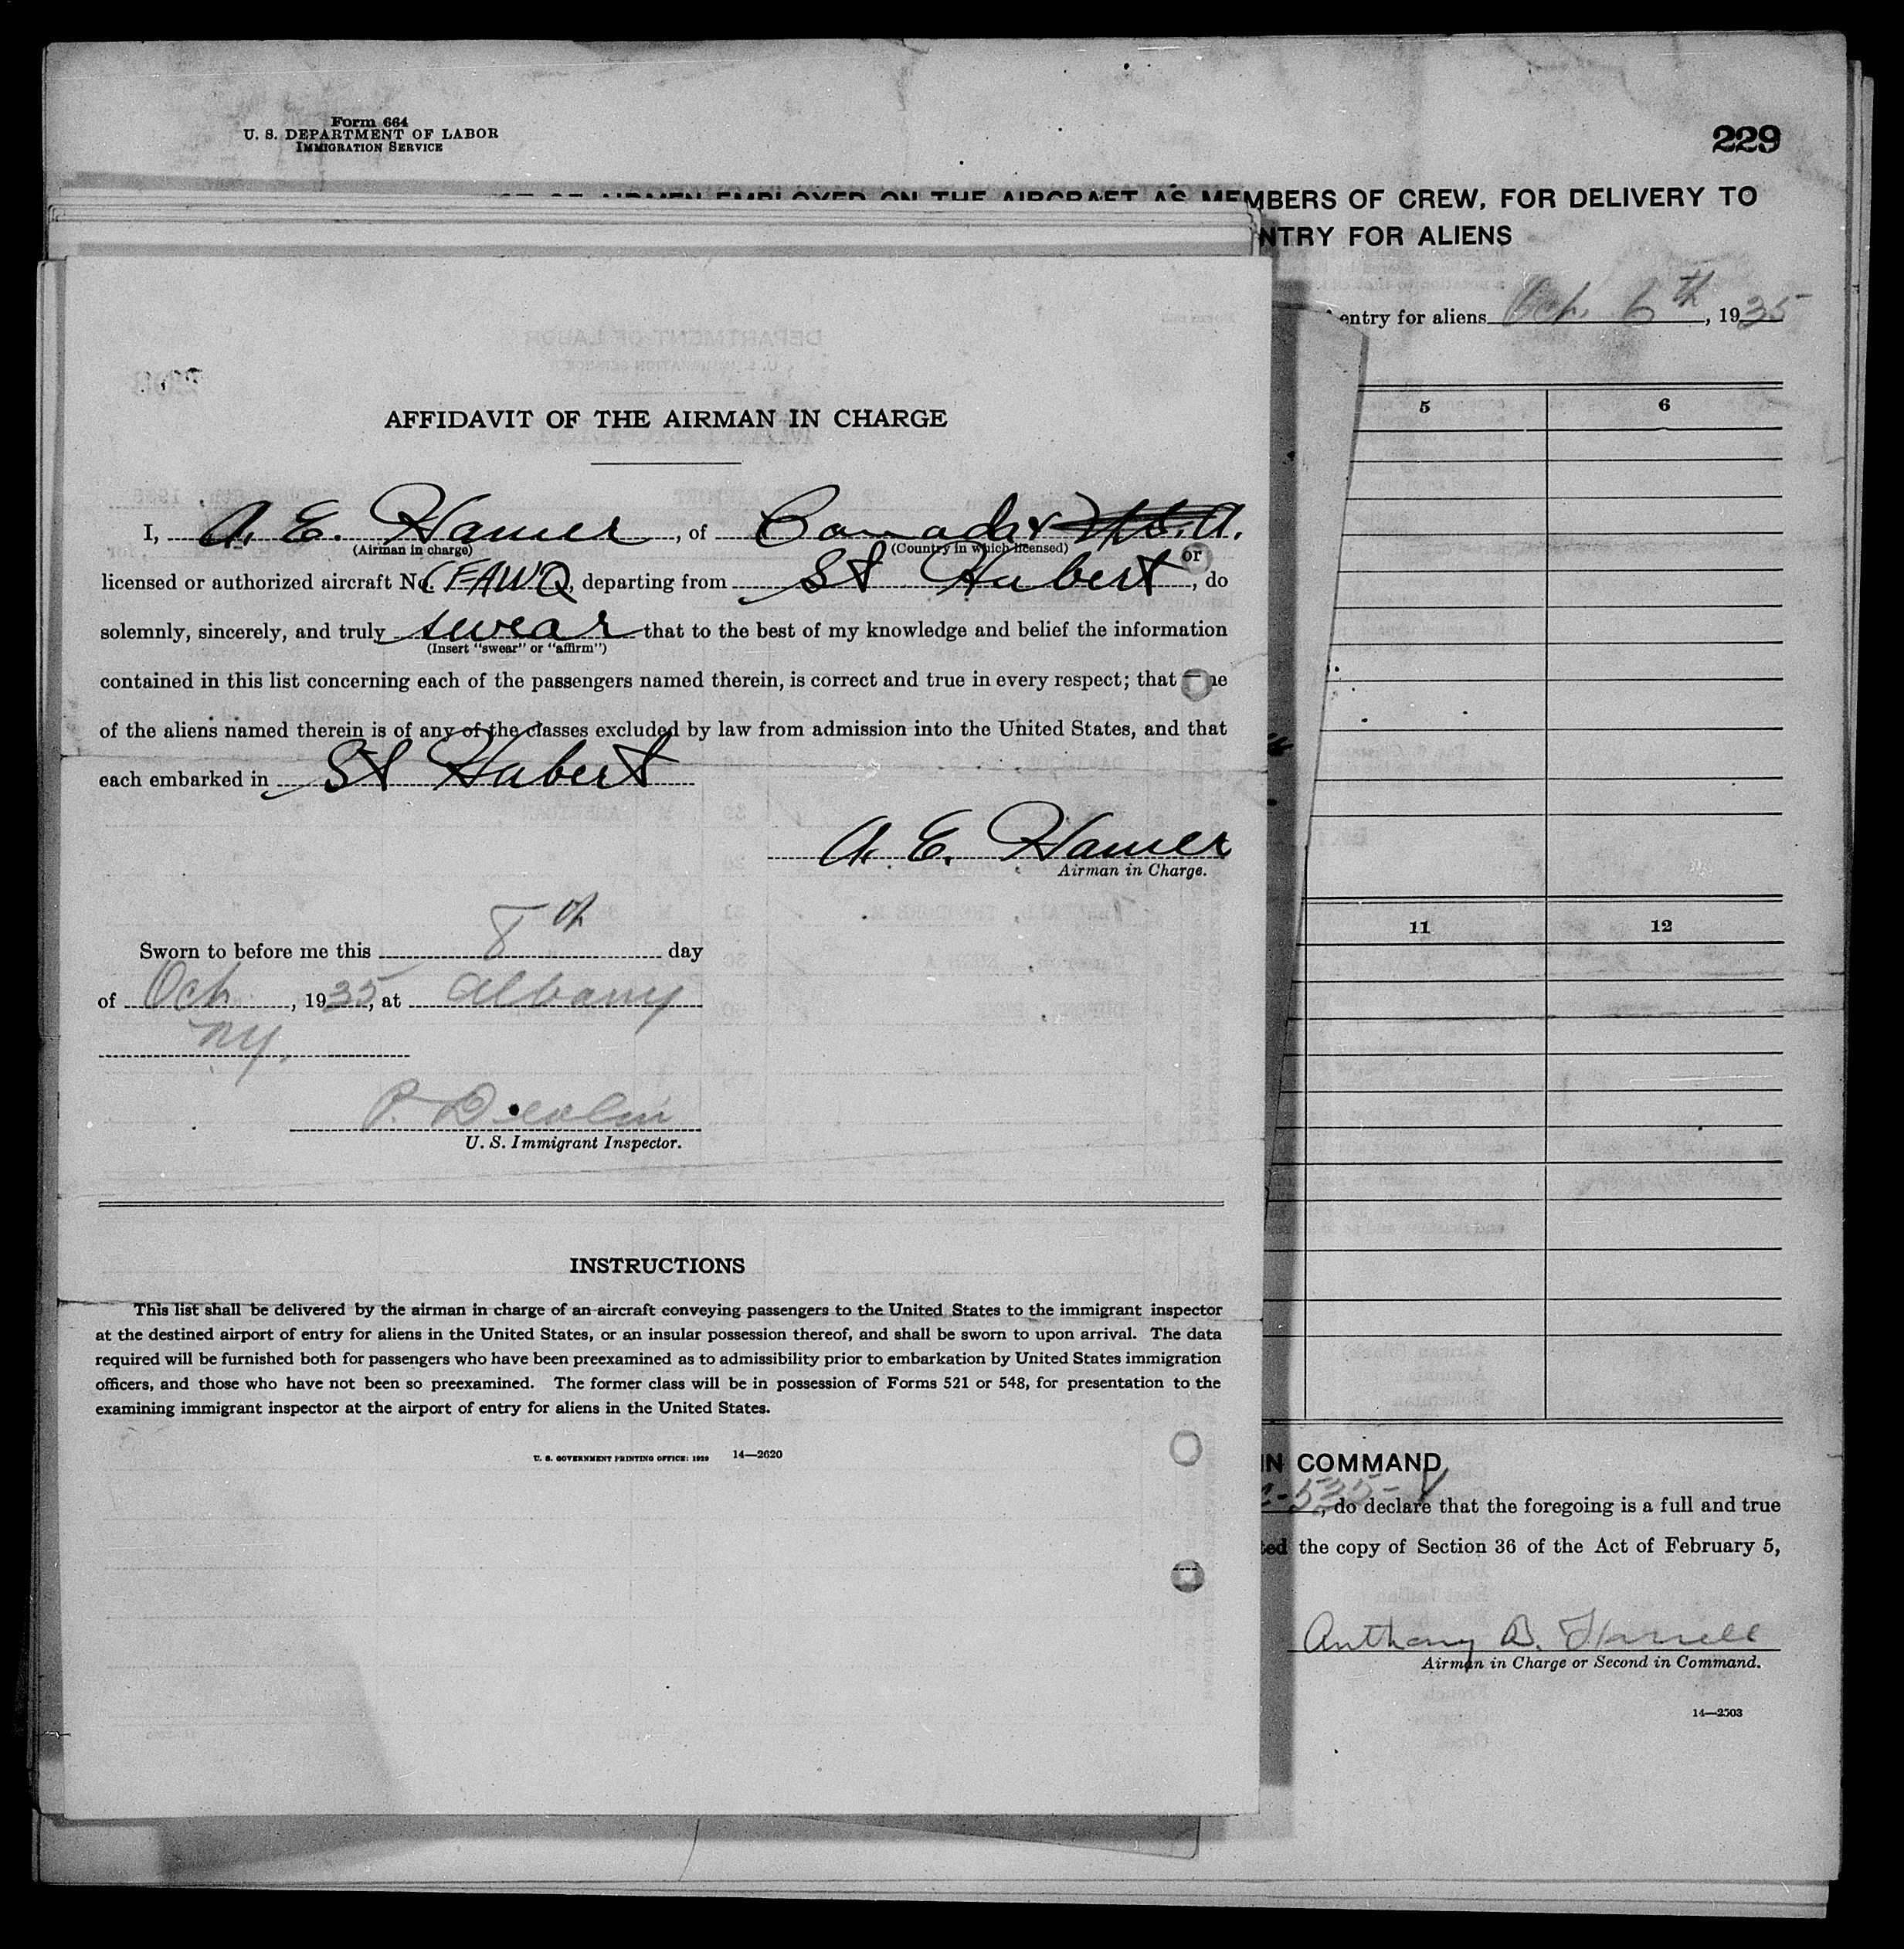 Form 664
U. S. DEPARTMENT OF LABOR
IMMIGRATION SERVICE
229
AIRMEN EMPLOYED ON THE AIRCRAFT AS MEMBERS OF CREW, FOR DELIVERY TO
NTRY FOR ALIENS
entry for aliens Oct. 6th, 1935
5 6
AFFIDAVIT OF THE AIRMAN IN CHARGE
I, A. E. Hamer, of Canada & U.S.A.
(Airman in charge) (Country in which licensed)
or
licensed or authorized aircraft No. CFAWQ, departing from St Hubert, do
solemnly, sincerely, and truly swear that to the best of my knowledge and belief the information
(Insert "swear" or "affirm")
contained in this list concerning each of the passengers named therein, is correct and true in every respect; that ne
of the aliens named therein is of any of the classes excluded by law from admission into the United States, and that
each embarked in St Hubert
A. E. Hamer
Airman in Charge.
Sworn to before me this 8th day
of Oct, 1935, at Albany
NY.
P. Devlin
U. S. Immigrant Inspector.
11 12
INSTRUCTIONS
This list shall be delivered by the airman in charge of an aircraft conveying passengers to the United States to the immigrant inspector
at the destined airport of entry for aliens in the United States, or an insular possession thereof, and shall be sworn to upon arrival. The data
required will be furnished both for passengers who have been preexamined as to admissibility prior to embarkation by United States immigration
officers, and those who have not been so preexamined. The former class will be in possession of Forms 521 or 548, for presentation to the
examining immigrant inspector at the airport of entry for aliens in the United States.
U. S. GOVERNMENT PRINTING OFFICE: 1929 14—2620
IN COMMAND
-535-, do declare that the foregoing is a full and true
ted the copy of Section 36 of the Act of February 5,
Anthony B.
Airman in Charge or Second in Command.
14—2503